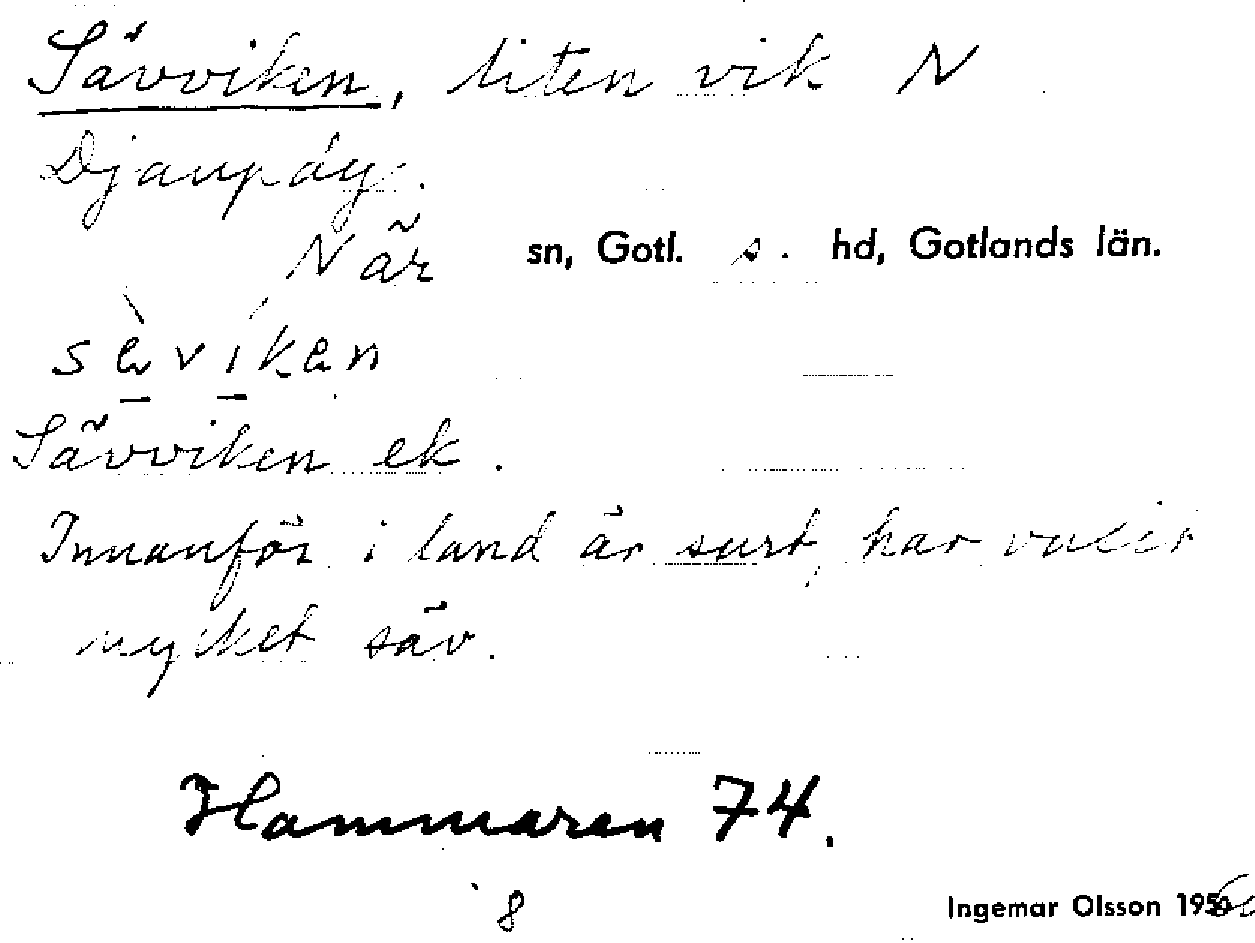 Sävviken, liten vik N
Djaupdy.
När sn, Gotl. s. hd, Gotlands län.
sèvíkɐn
Sävviken ek.
Innanför i land är surt, har vatit
mycket säv.
Hammaren 74.
8
Ingemar Olsson 195